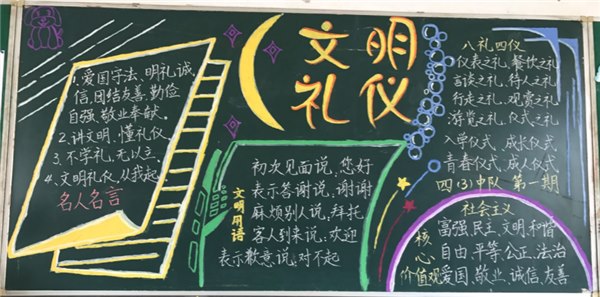 文明
礼仪
1、爱国守法、明礼诚
信、团结友善、勤俭
自强、敬业奉献。
2、讲文明、懂礼仪
3、不学礼,无以立。
4、文明礼仪,从我起。
名人名言
文明用语
初次见面说,您好
表示答谢说,谢谢
麻烦别人说,拜托
客人到来说,欢迎
表示歉意说,对不起
八礼四仪
仪表之礼、餐饮之礼
言谈之礼、待人之礼
行走之礼、观赏之礼
游览之礼、仪式之礼
入学仪式、成长仪式
青春仪式、成人仪式
四(3)中队 第一期
社会主义
核心
价值观
富强、民主、文明、和谐
自由、平等、公正、法治
爱国、敬业、诚信、友善